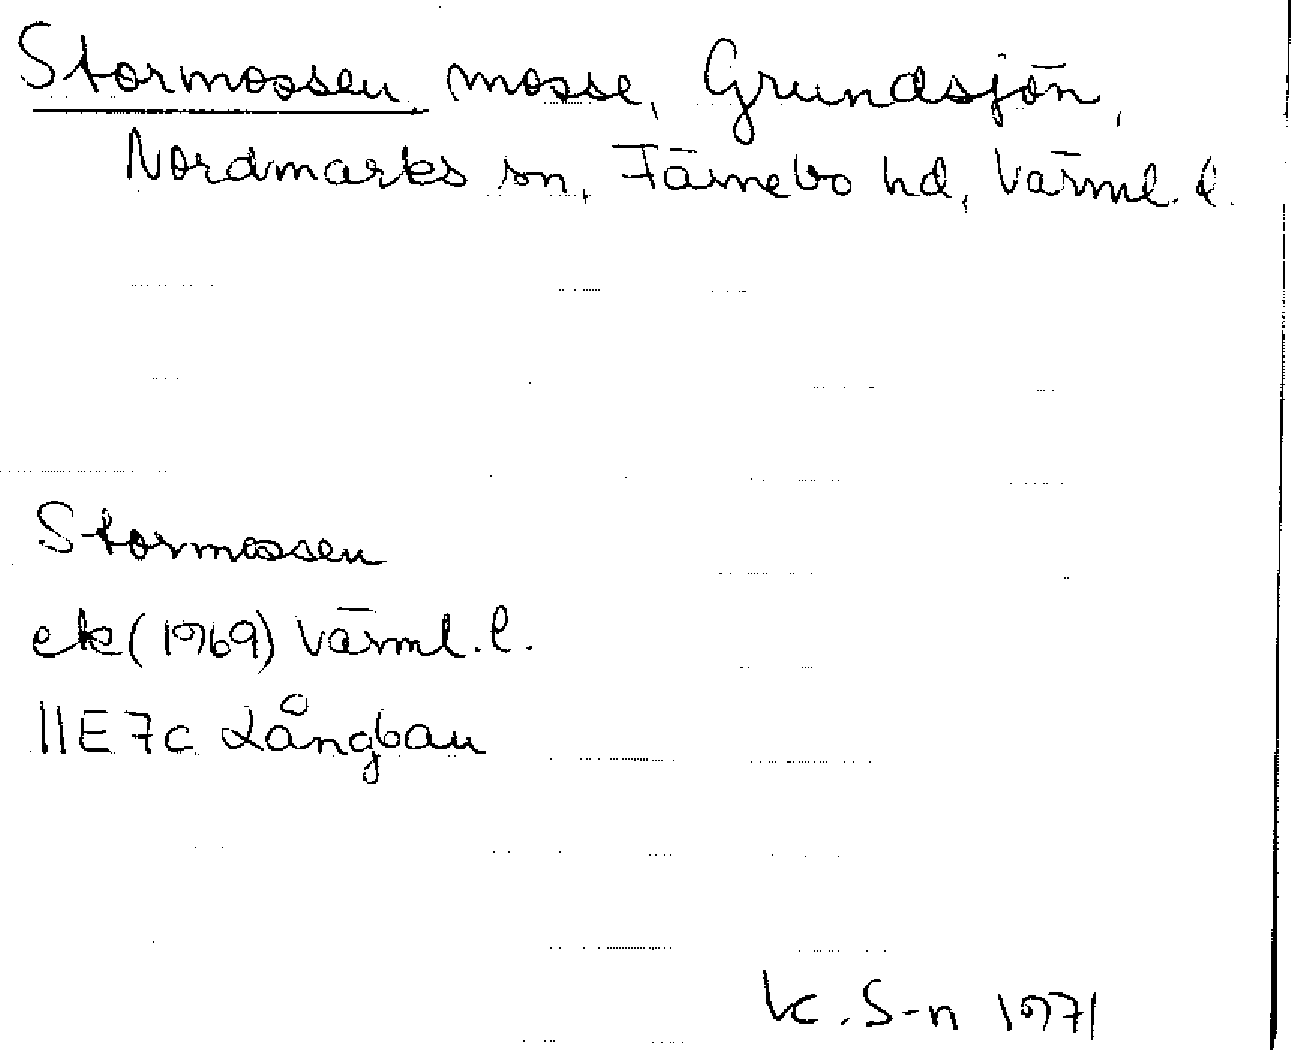 Stormossen mosse, Grundsjön,
Nordmarks sn, Färnebo hd, Värml. l.
Stormossen
ek (1969) Värml. l.
11E7c Långban
K. S-n 1971